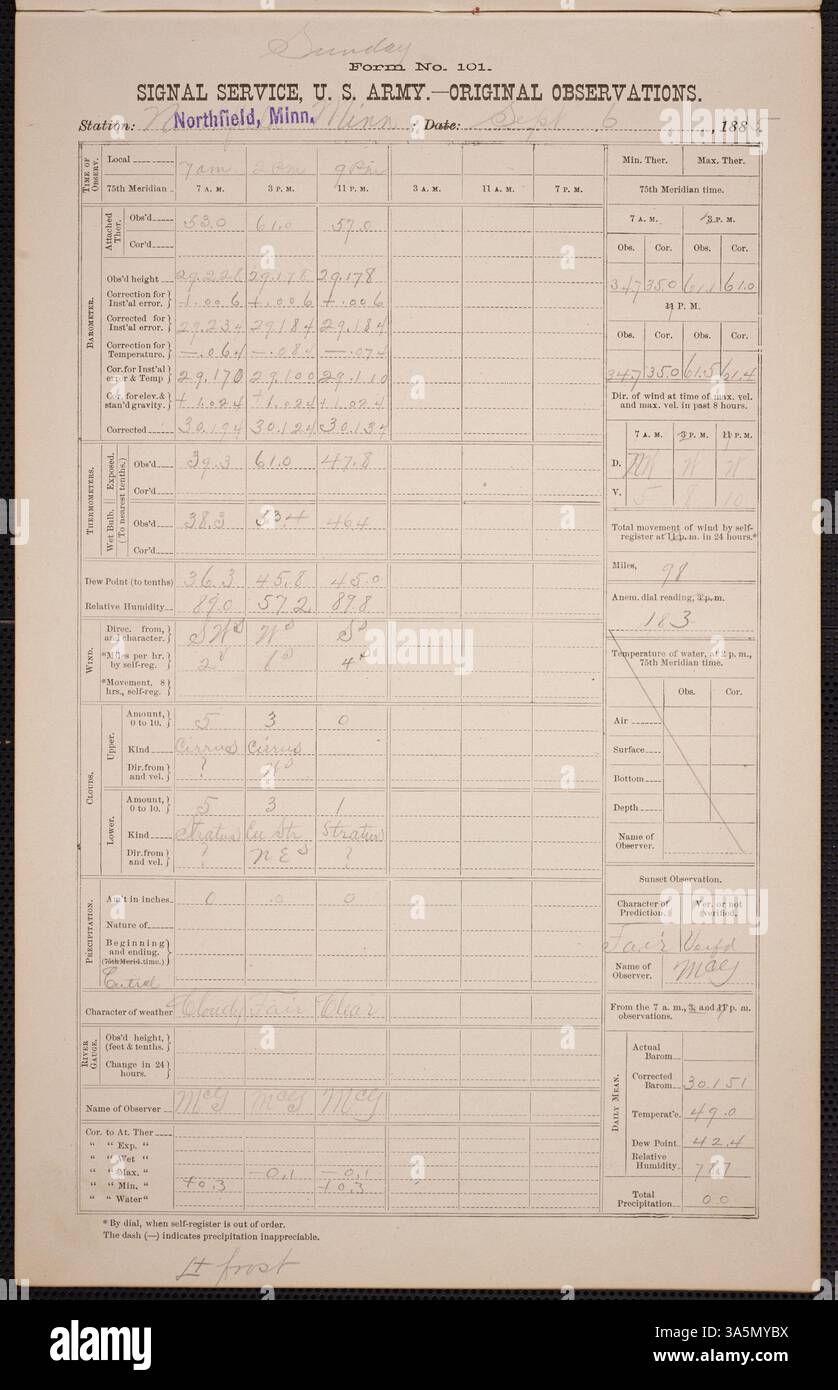 Sunday
Form No. 101.
SIGNAL SERVICE, U. S. ARMY.—ORIGINAL OBSERVATIONS.
Station: Northfield, Minn. Minn ; Date: Sept 6, 1885
TIME OF OBSERV.
Local 7 am 2 pm 9 pm
75th Meridian 7 A. M. 3 P. M. 11 P. M. 3 A. M. 11 A. M. 7 P. M.
Attached Ther.
Obs'd 53.0 61.0 57.0
Cor'd
BAROMETER.
Obs'd height 29.228 29.178 29.178
Correction for Inst'al error. +.006 +.006 +.006
Corrected for Inst'al error. 29.234 29.184 29.184
Correction for Temperature. —.064 —.084 —.074
Cor. for Inst'al error & Temp 29.170 29.100 29.110
Cor. for elev. & stan'd gravity. +1.024 +1.024 +1.024
Corrected 30.194 30.124 30.134
THERMOMETERS.
Exposed.
(To nearest tenths.)
Obs'd 39.3 61.0 47.8
Cor'd
Wet Bulb.
Obs'd 38.3 53.4 46.4
Cor'd
Dew Point (to tenths) 36.3 45.8 45.0
Relative Humidity 89.0 57.2 89.8
WIND.
Direc. from, and character. SW W S
*Miles per hr. by self-reg. 2 4
*Movement, 8 hrs., self-reg.
CLOUDS.
Upper.
Amount, 0 to 10. 5 3 0
Kind Cirrus Cirrus
Dir. from and vel. ?
Lower.
Amount, 0 to 10. 5 3 1
Kind Stratus Cu Str Stratus
Dir. from and vel. ? NE ?
PRECIPITATION.
Am't in inches 0 .0 0
Nature of
Beginning and ending. (75th Merid. time.)
Central
Character of weather Cloudy Fair Clear
RIVER GAUGE.
Obs'd height, (feet & tenths.
Change in 24 hours.
Name of Observer McG McG McG
Cor. to At. Ther
" " Exp. "
" " Wet "
" " Max. " —0.1 —0.1
" " Min. " +0.3 +0.3
" " Water "
* By dial, when self-register is out of order.
The dash (—) indicates precipitation inappreciable.
Lt frost
Min. Ther. Max. Ther.
75th Meridian time.
7 A. M. 3 P. M.
Obs. Cor. Obs. Cor.
34.7 35.0 61.1 61.0
11 P. M.
Obs. Cor. Obs. Cor.
34.7 35.0 61.5 61.4
Dir. of wind at time of max. vel. and max. vel. in past 8 hours.
7 A. M. 3 P. M. 11 P. M.
D. NW W W
V. 5 8 10
Total movement of wind by self-register at 11 p. m. in 24 hours.*
Miles, 98
Anem. dial reading, 3 p. m.
183
Temperature of water, at 2 p. m., 75th Meridian time.
Obs. Cor.
Air
Surface
Bottom
Depth
Name of Observer.
Sunset Observation.
Character of Prediction. Ver. or not verified.
Fair Verifd
Name of Observer. McG
From the 7 a. m., 3, and 11 p. m. observations.
DAILY MEAN.
Actual Barom
Corrected Barom 30.151
Temperat'e. 49.0
Dew Point 42.4
Relative Humidity 77.7
Total Precipitation 0.0
alamy
Image ID: 3A5MYBX
www.alamy.com